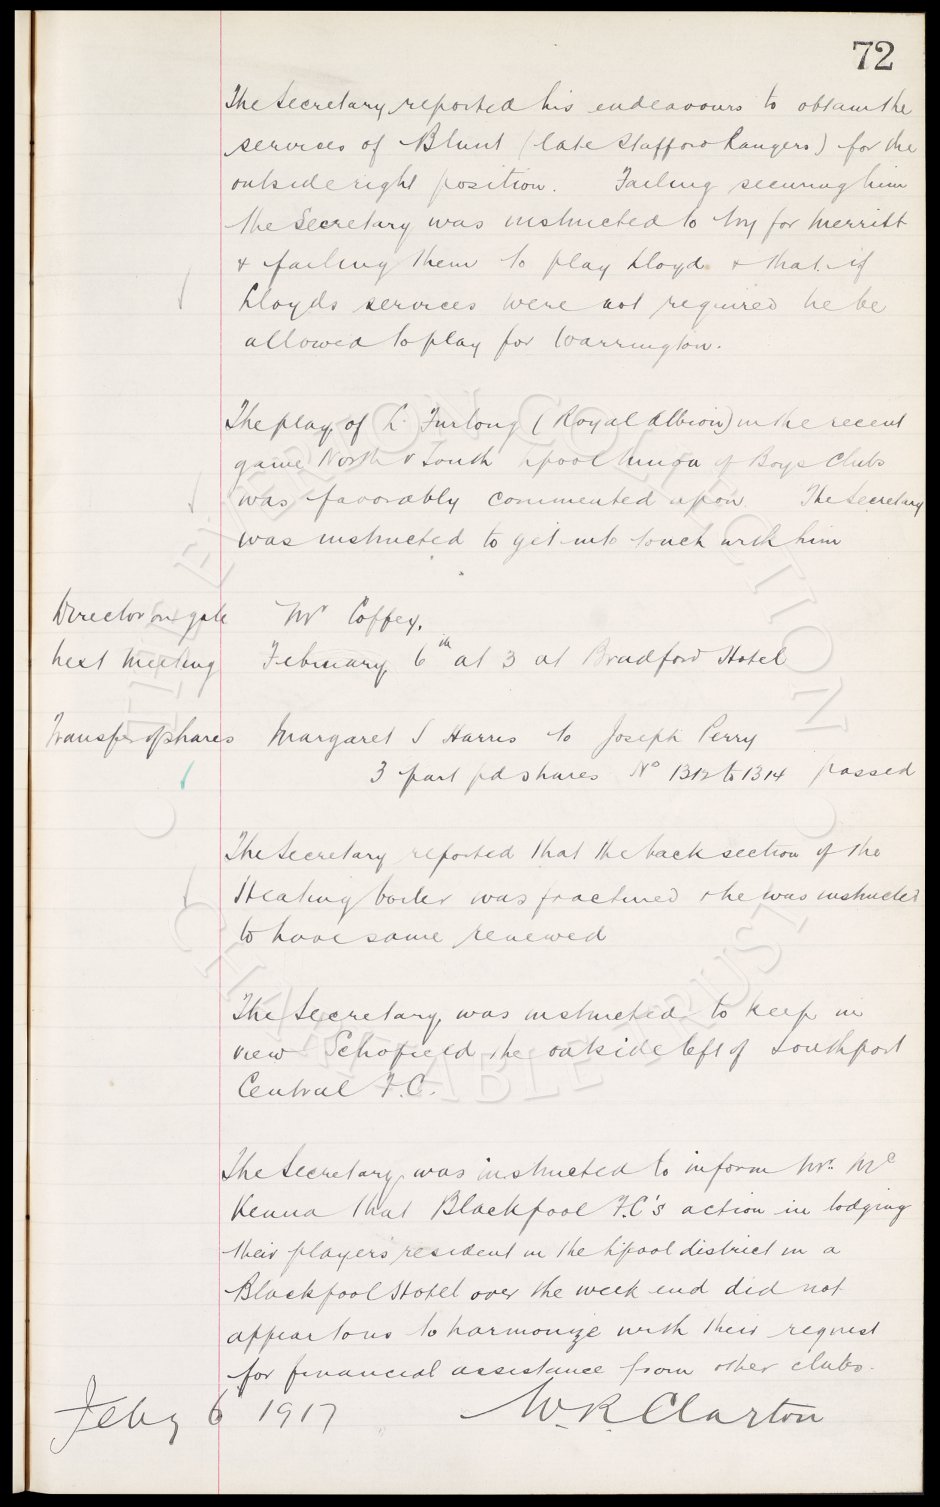 72
The Secretary reported his endeavours to obtain the
services of Blunt (late Stafford Rangers) for the
outside right position. Failing securing him
the Secretary was instructed to try for Merritt
& failing them to play Lloyd & that if
Lloyds services were not required he be
allowed to play for Warrington.
The play of L. Furlong (Royal Albion) in the recent
game North v South Lpool Union of Boys Clubs
was favorably commented upon. The Secretary
was instructed to get into touch with him
Director on gate Mr Coffey.
Next Meeting February 6th at 3 at Bradford Hotel
Transfer of shares Margaret S Harris to Joseph Perry
3 part pd shares No 1312 to 1314 passed
The Secretary reported that the back section of the
Heating boiler was fractured & he was instructed
to have same renewed
The Secretary was instructed to keep in
view Schofield the outside left of Southport
Central F.C.
The Secretary was instructed to inform Mr. Mc
Kenna that Blackpool F.C's action in lodging
their players resident in the L'pool district in a
Blackpool Hotel over the week end did not
appear to us to harmonize with their request
for financial assistance from other clubs.
Feby 6 1917 W. R. Clayton
THE EVERTON COLLECTION
CHARITABLE TRUST